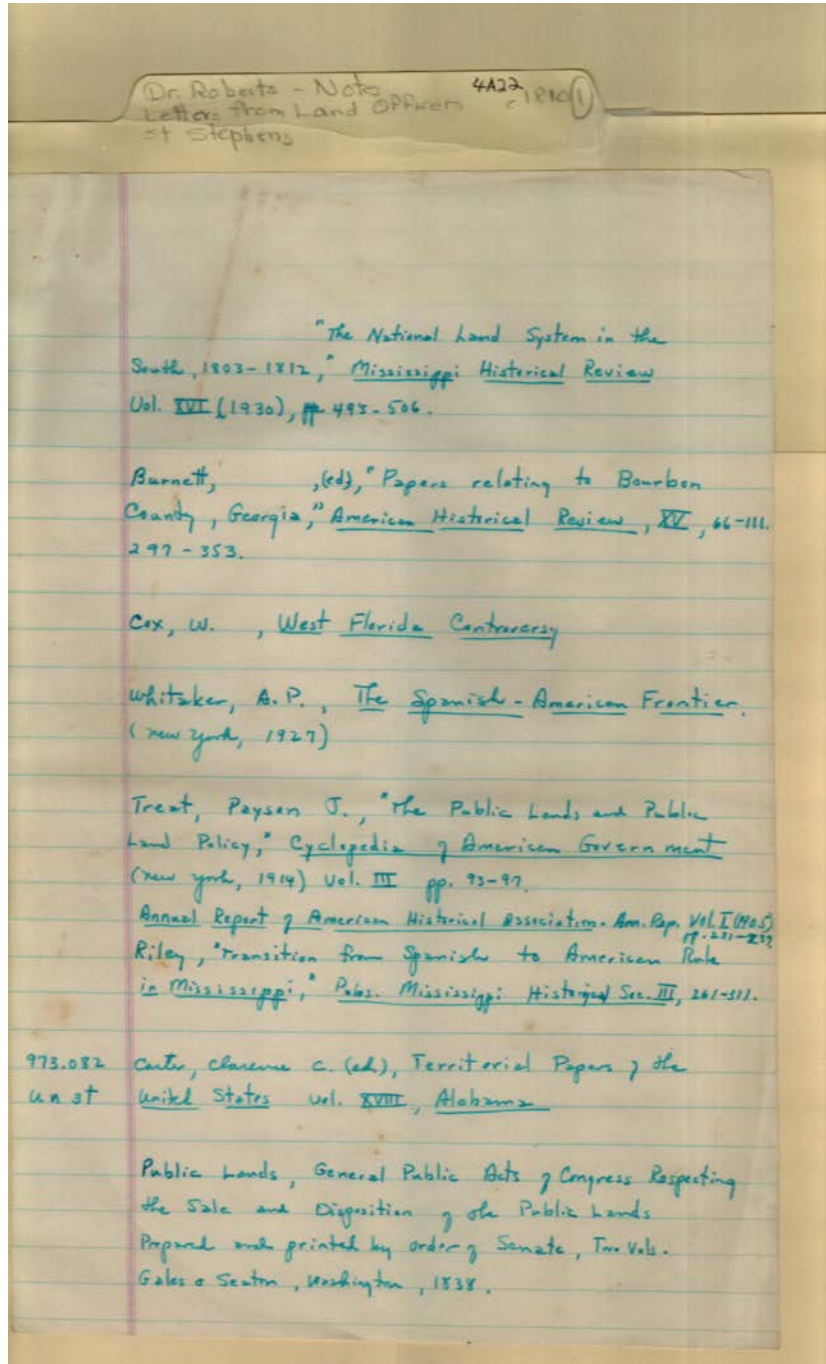 Dr. Roberts - Notes 4A22
Letters from Land Officers c1810 (1)
St Stephens
"The National Land System in the
South, 1803-1812," Mississippi Historical Review
Vol. XVI (1930), pp 495-506.
Burnett, ,(ed), "Papers relating to Bourbon
County, Georgia," American Historical Review, XV, 66-111.
297-353.
Cox, W. , West Florida Controversy
Whitaker, A.P., The Spanish-American Frontier.
(New York, 1927)
Treat, Payson J., "The Public Lands and Public
Land Policy," Cyclopedia of American Government
(New York, 1914) Vol. III pp. 93-97.
Annual Report of American Historical Association. Ann. Rep. Vol. I (1905)
pp. 231-
Riley, "Transition from Spanish to American Rule
in Mississippi," Pubs. Mississippi Historical Soc. III, 261-311.
973.082 Carter, Clarence C. (ed.), Territorial Papers of the
Un3t United States Vol. XVIII, Alabama
Public Lands, General Public Acts of Congress Respecting
the Sale and Disposition of the Public Lands
Prepared and printed by order of Senate, Two Vols.
Gales & Seaton, Washington, 1838.